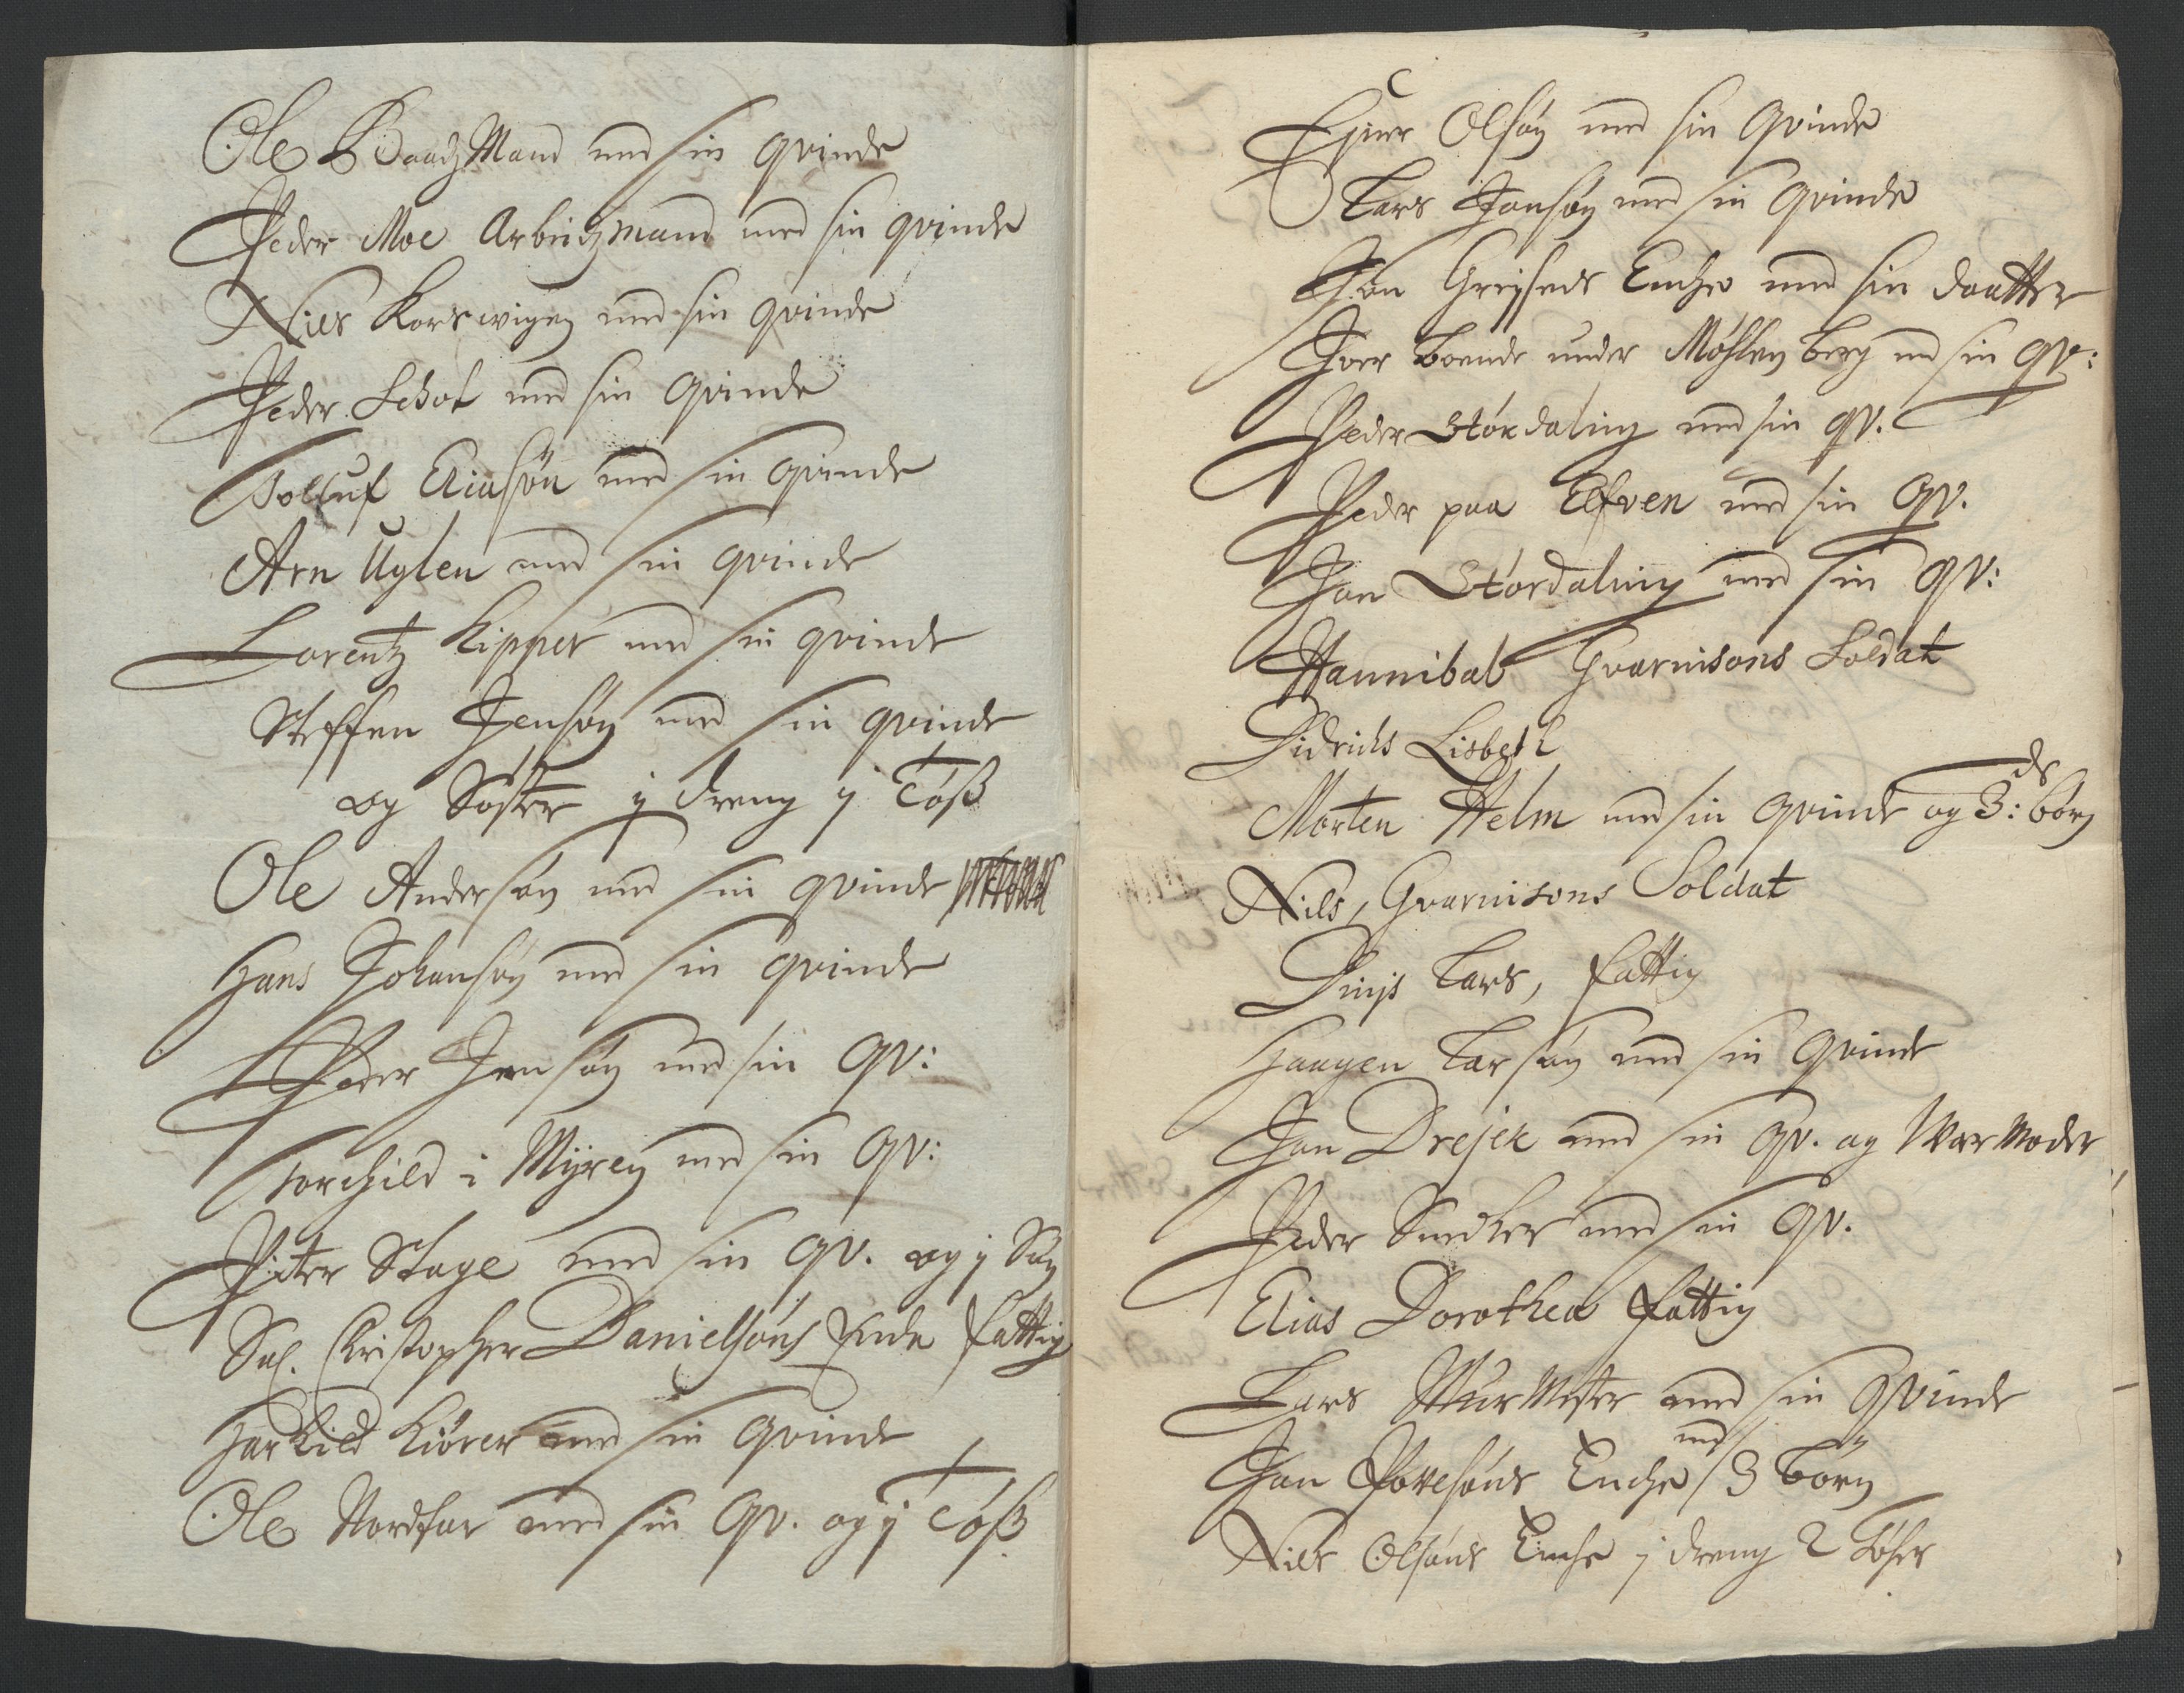 Ole BaadzMand med sin qvinde
Peder Moe Arbeidzmand med sin qvinde
Niels Korswigen med sin qvinde
Peder Schot med sin qvinde
Tolluf Eriasøn med sin qvinde
Arn Uglen med sin qvinde
Lorentz Kipper med sin qvinde
Steffen Jensøn med sin qvinde
og Søster j dreng j Tøß
Ole Andersøn med sin qvinde
Hans Johansøn med sin qvinde
Peder Jensøn med sin qv:
Torchild i Myren med sin qv:
Piter Stage med sin qv. og j Søn
Sal. Christopher Danielsøns Enke fattig
Harkild Kiører med sin qvinde
Ole Nordfar med sin qv. og j Tøß
Ejner Olsøn med sin qvinde
Lars Jonsøn med sin qvinde
Jon Greyseds Enche med sin daatter
Iver boende under Møhlenberg med sin qv:
Peder Størdaling med sin qv.
Peder paa Elfven med sin qv.
Jon Størdaling med sin qv:
Hannibal Gvarnisons Soldat
Didrichs Lisbeth
Morten Helm med sin qvinde og 3: børn
Nils, Gvarnisons Soldat
Lars, fattig
Haagen Larsøn med sin qvinde
Jan Drejer med sin qv. og Wermoder
Peder Snedker med sin qv.
Elias Dorothea fattig
Lars MurMester med sin qvinde
Jon Povelsøns Enche med 3 børn
Niels Olsøns Enche j dreng 2 tøser